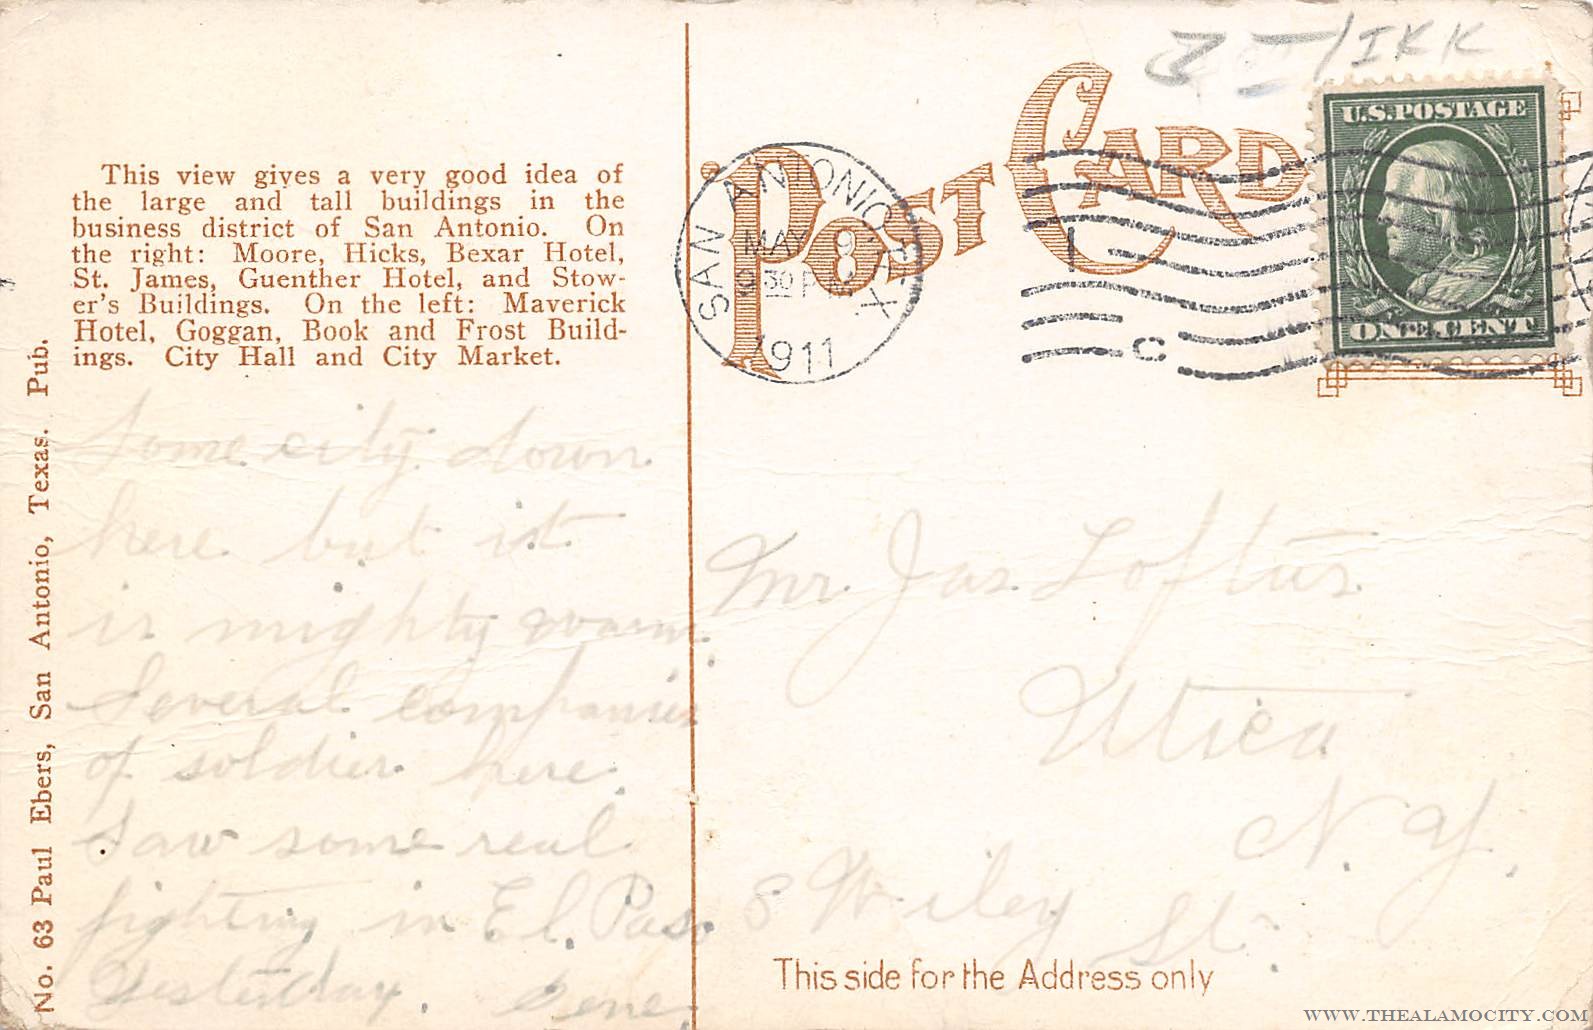 35/IKK
POST CARD
U.S. POSTAGE
ONE CENT
SAN ANTONIO, TEX.
MAY 9
30 P.M.
1911
1
C
This view gives a very good idea of
the large and tall buildings in the
business district of San Antonio. On
the right: Moore, Hicks, Bexar Hotel,
St. James, Guenther Hotel, and Stow-
er's Buildings. On the left: Maverick
Hotel, Goggan, Book and Frost Build-
ings. City Hall and City Market.
No. 63 Paul Ebers, San Antonio, Texas. Pub.
Some city down
here but it
is mighty warm.
Several companies
of soldier here.
Saw some real
fighting in El. Paso
Yesterday. Gene.
Mr. Jas Loftus.
Utica
N. Y.
8 Wiley St.
This side for the Address only
WWW.THEALAMOCITY.COM